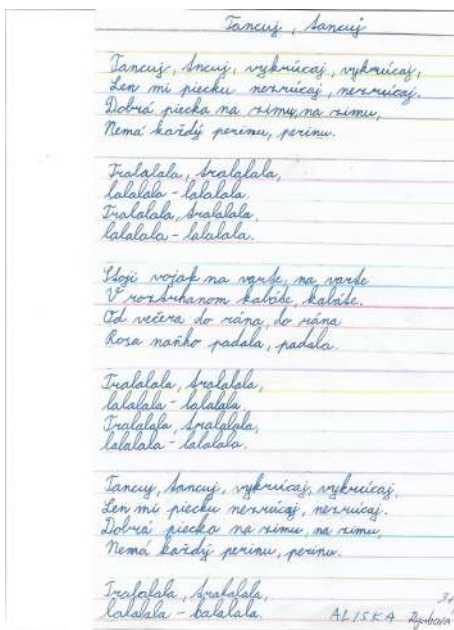 Tancuj, tancuj
Tancuj, tncuj, vykrúcaj, vykrúcaj,
Len mi piecku nezrúcaj, nezrúcaj.
Dobrá piecka na zimu, na zimu,
Nemá každý perinu, perinu.
Tralalala, tralalala,
lalalala - lalalala.
Tralalala, tralalala,
lalalala - lalalala.
Stojí vojak na varte, na varte
V roztrhanom kabáte, kabáte.
Od večera do rána, do rána
Rosa naňho padala, padala.
Tralalala, tralalala,
lalalala - lalalala
Tralalala, tralalala,
lalalala - lalalala.
Tancuj, tancuj, vykrúcaj, vykrúcaj,
Len mi piecku nezrúcaj, nezrúcaj.
Dobrá piecka na zimu, na zimu,
Nemá každý perinu, perinu.
Tralalala, tralalala,
lalalala - lalalala.
ALISKA